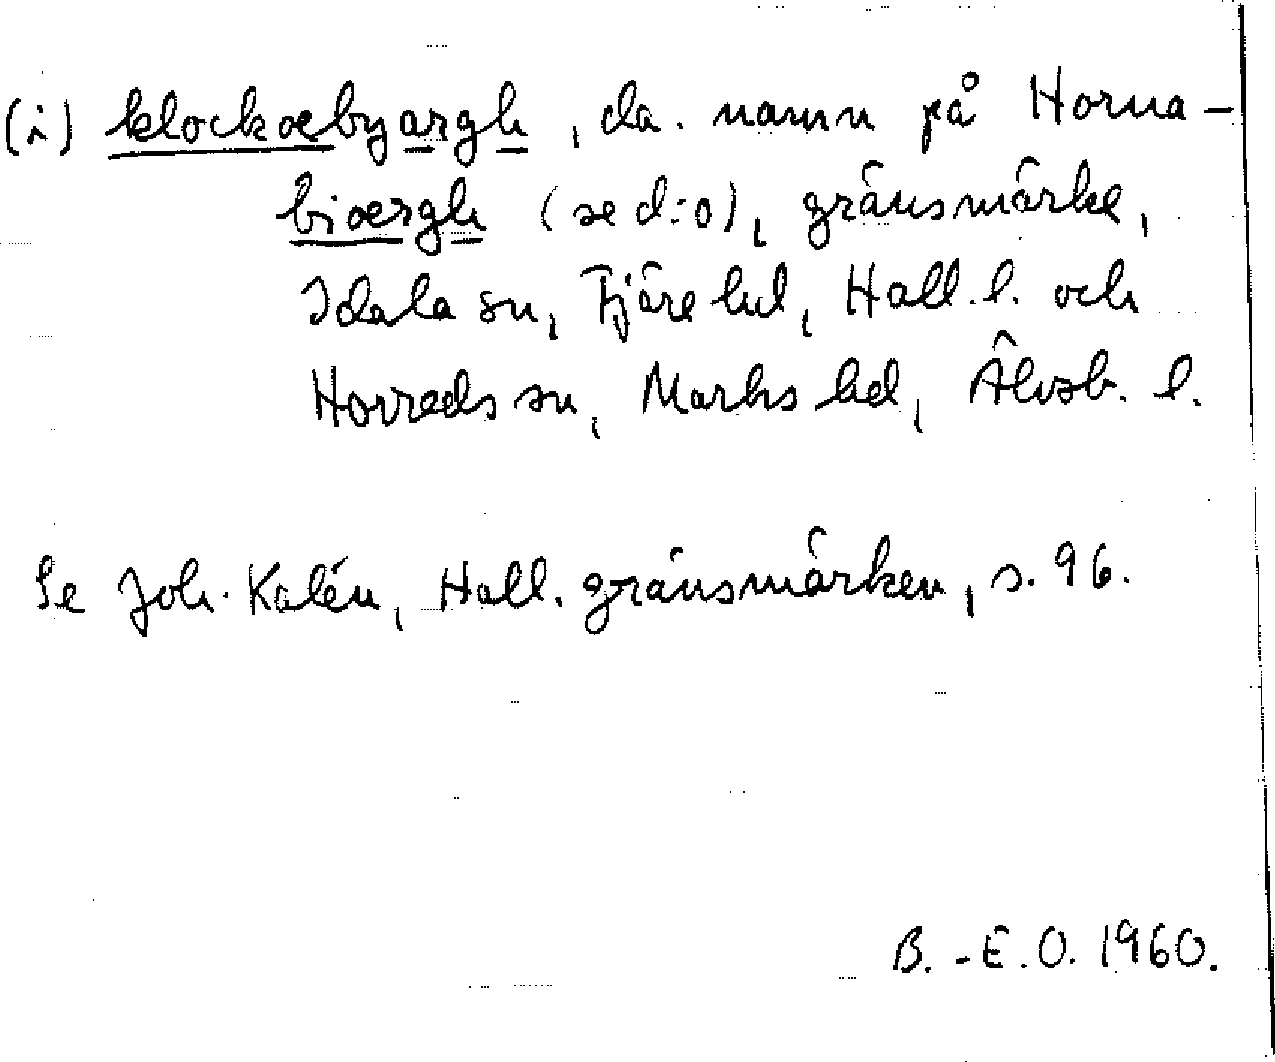 (i) klockæbyargh, da. namn på Horna-
biærgh (se d:o), gränsmärke,
Idala sn, Fjäre hd, Hall. l. och
Horreds sn, Marks hd, Älvsb. l.
Se Joh. Kalén, Hall. gränsmärken, s. 96.
B.-E.O. 1960.